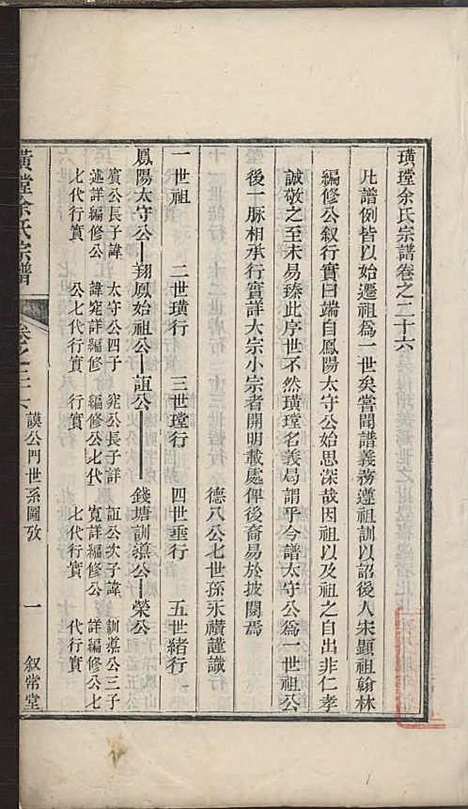 璜瑝余氏宗譜卷之二十六
凡譜例皆以始遷祖為一世矣嘗聞譜義務遵祖訓以詔後人宋顯祖翰林
編修公叙行實曰端自鳳陽太守公始思深哉因祖以及祖之自出非仁孝
誠敬之至未易臻此序世不然璜瑝名義局謂乎今譜太守公為一世祖公
後一脈相承行實詳大宗小宗者開明載處俾後裔易於披閱焉
德八公七世孫永禶謹識
一世祖 二世璜行 三世瑝行 四世垂行 五世緒行
鳳陽太守公—翔鳳始祖公—詎公—錢塘訓導公—榮公
賓公長子諱 太守公四子 窕公長子詳 詎公次子諱 訓導公三子
述詳編修公 諱窕詳編修 編修公七代 寬詳編修公 詳編修公七
七代行實 公七代行實 行實 七代行實 代行實
璜瑝余氏宗譜
卷之二六
謨公門世系圖攷
一
叙常堂